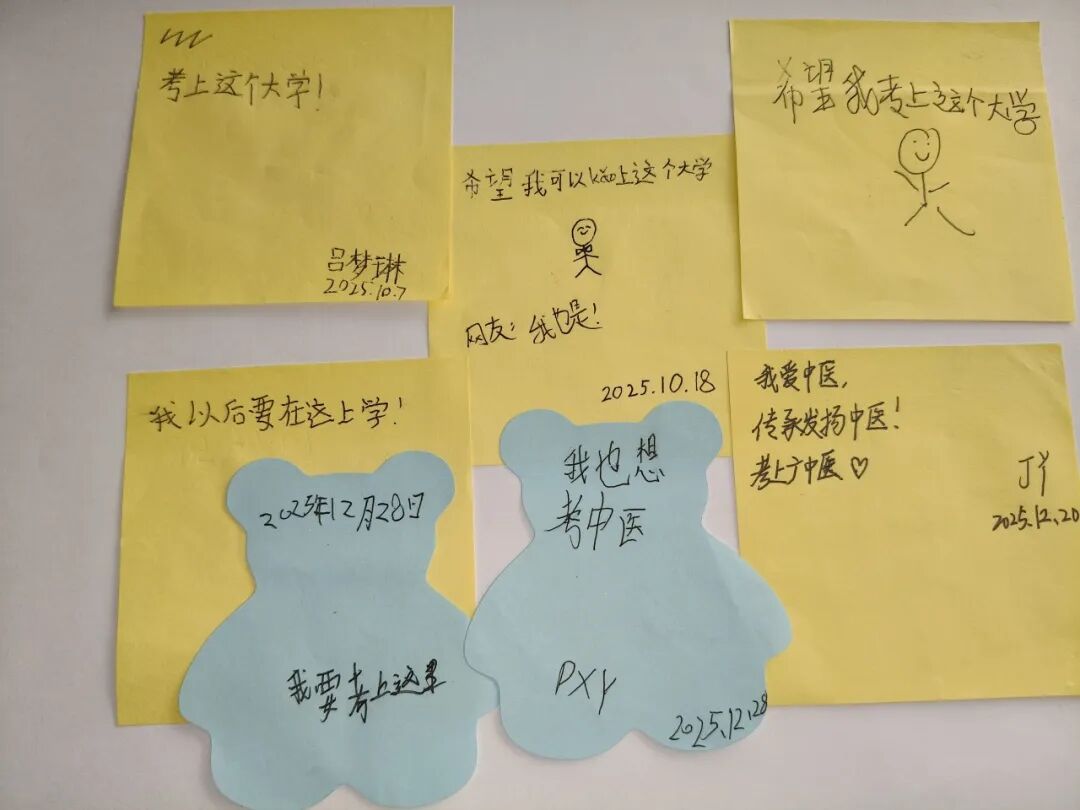 考上这个大学!
吕梦琳
2025.10.7
希望我可以kao上这个大学
网友:我也是!
2025.10.18
希望我考上这个大学
我以后要在这上学!
2025年12月28日
我要考上这里
我也想
考中医
PXY
2025.12.28
我爱中医,
传承发扬中医!
考上广中医♡
2025.12.20